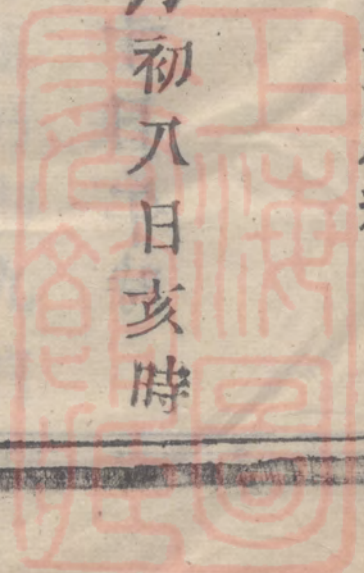 月初八日亥時
上海圖書館藏